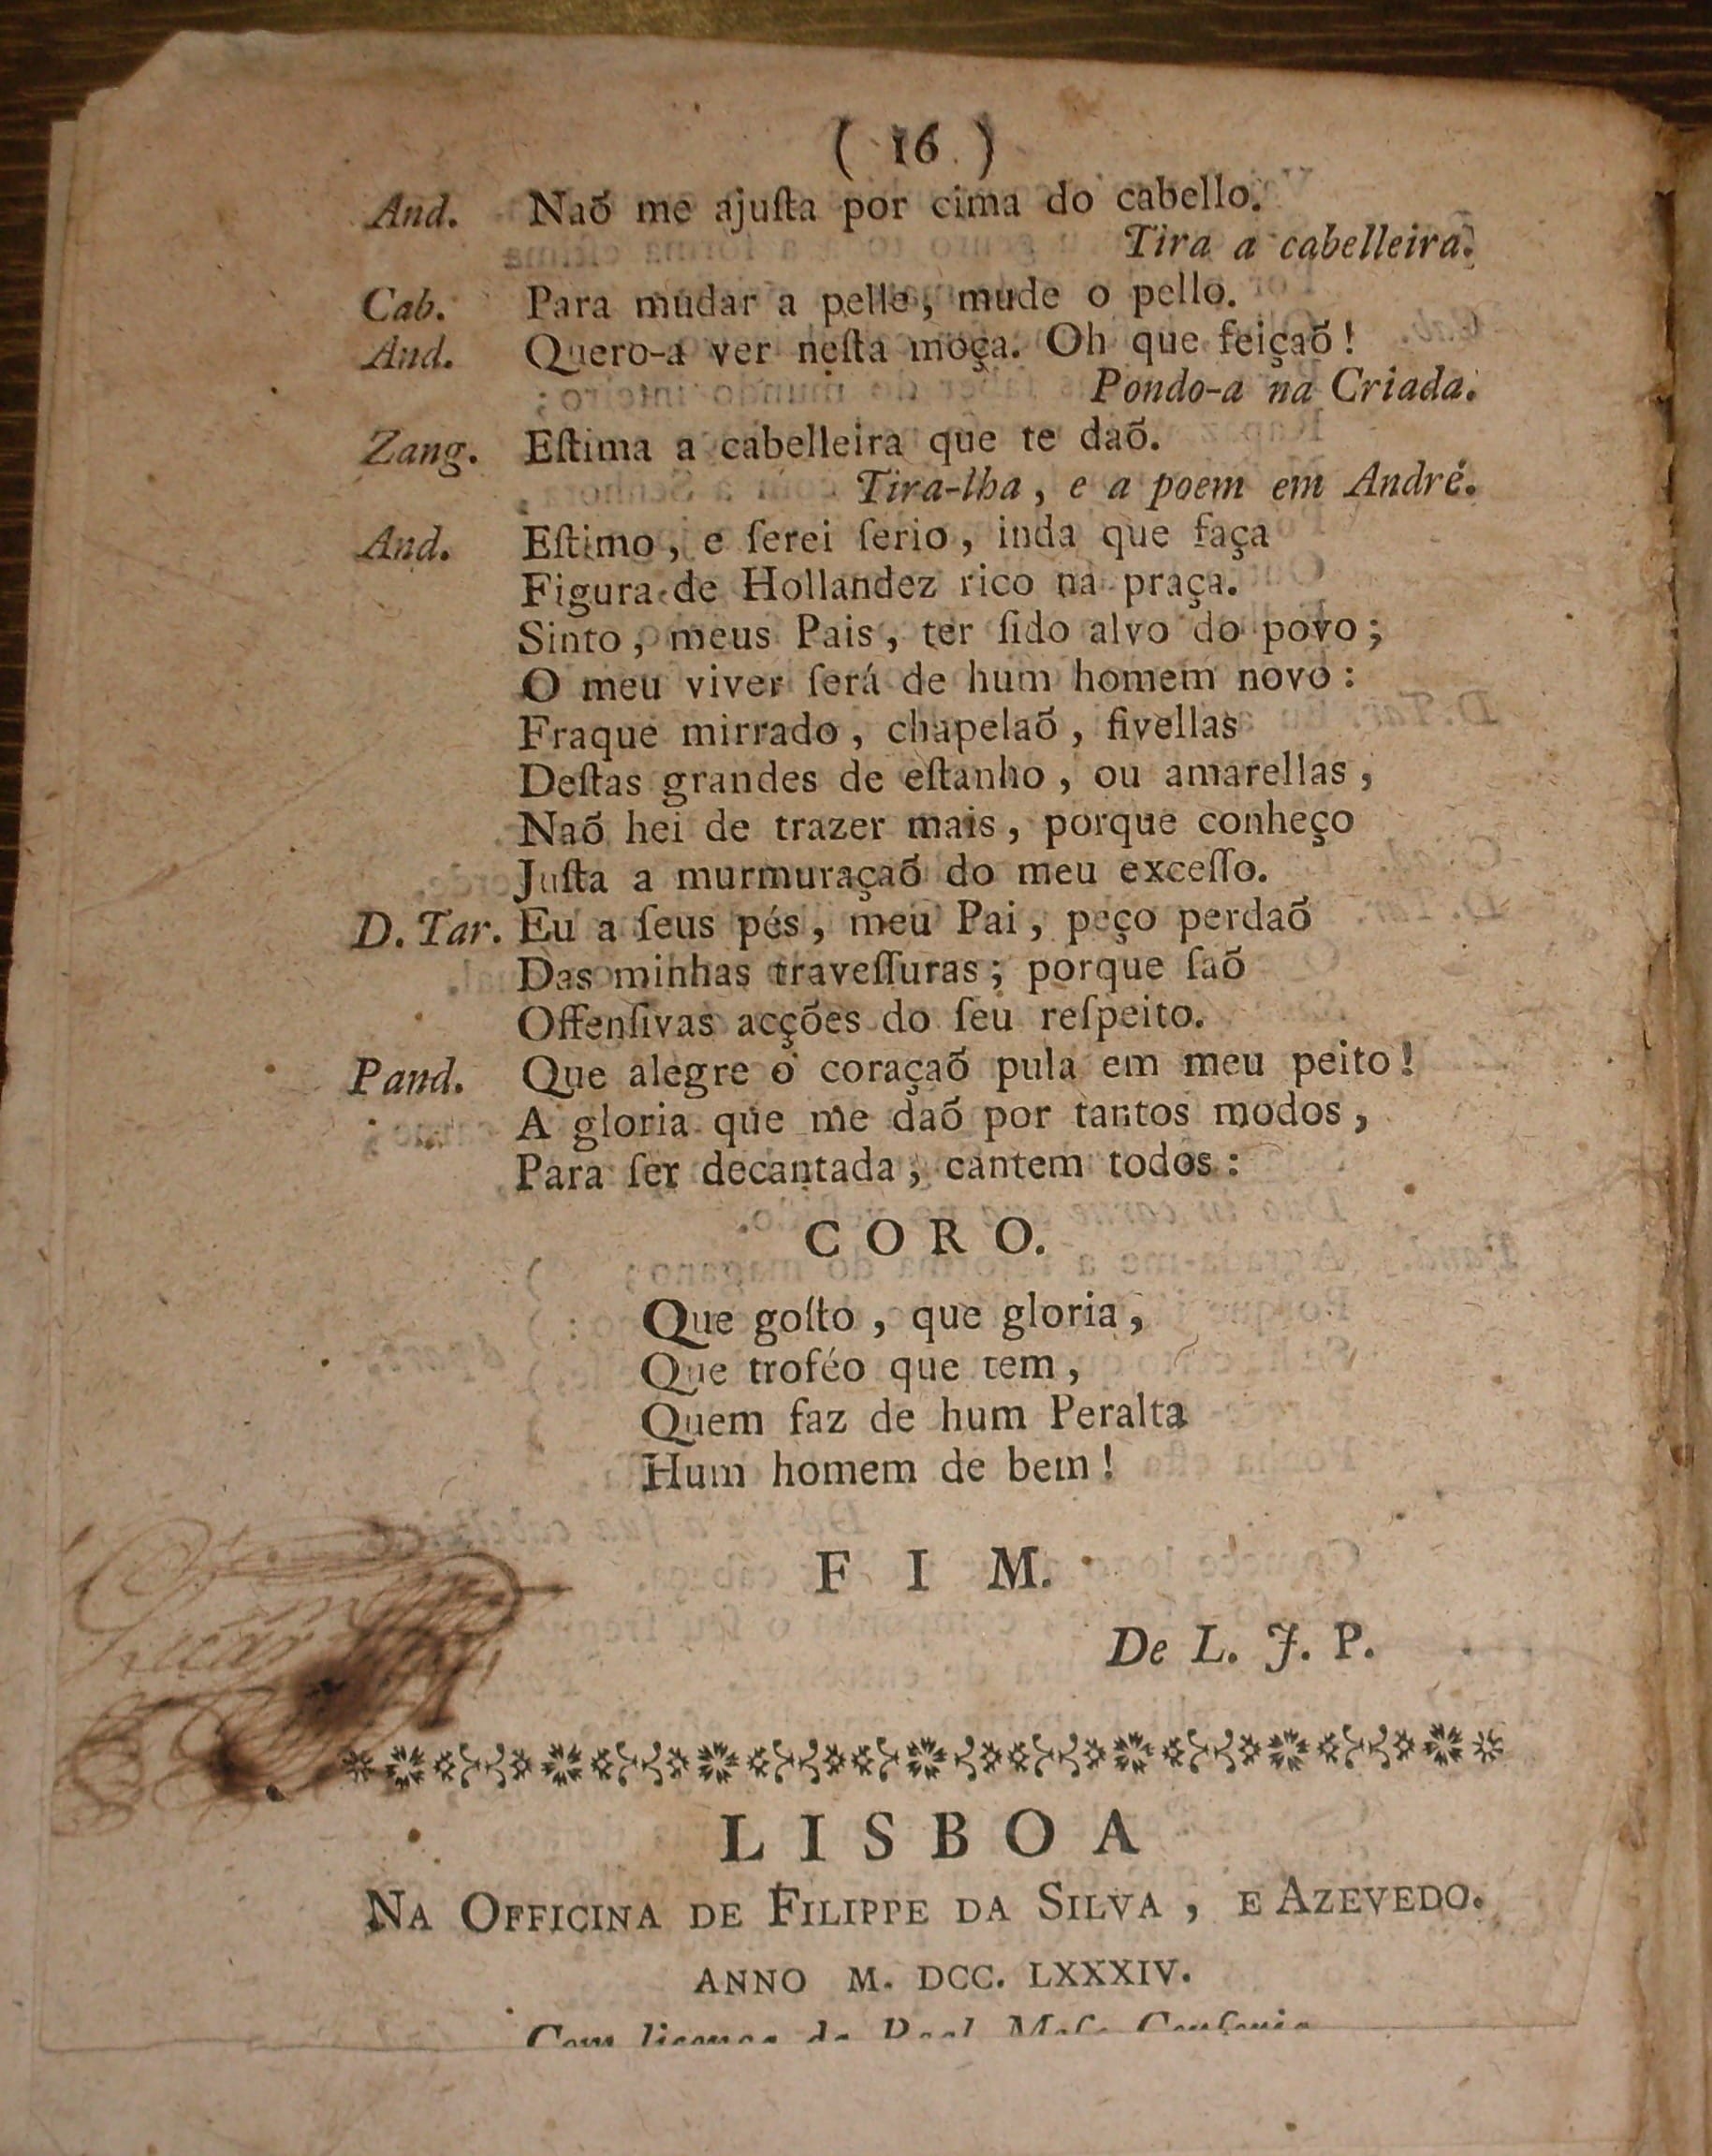 ( 16 )
And. Naõ me ajuſta por cima do cabello.
Tira a cabelleira.
Cab. Para mudar a pelle, mude o pello.
And. Quero-a ver neſta moça. Oh que feiçaõ!
Pondo-a na Criada.
Zang. Eſtima a cabelleira que te daõ.
Tira-lha, e a poem em André.
And. Eſtimo, e ſerei ſerio, inda que faça
Figura de Hollandez rico na praça.
Sinto, meus Pais, ter ſido alvo do povo;
O meu viver ſerá de hum homem novo:
Fraque mirrado, chapelaõ, fivellas
Deſtas grandes de eſtanho, ou amarellas,
Naõ hei de trazer mais, porque conheço
Juſta a murmuraçaõ do meu exceſſo.
D. Tar. Eu a ſeus pés, meu Pai, peço perdaõ
Das minhas traveſſuras; porque ſaõ
Offenſivas acções do ſeu reſpeito.
Pand. Que alegre o coraçaõ pula em meu peito!
A gloria que me daõ por tantos modos,
Para ſer decantada, cantem todos:
CORO.
Que goſto, que gloria,
Que troféo que tem,
Quem faz de hum Peralta
Hum homem de bem!
FIM.
De L. J. P.
LISBOA
NA OFFICINA DE FILIPPE DA SILVA, E AZEVEDO.
ANNO M. DCC. LXXXIV.
Com licença da Real Meſa Cenſoria